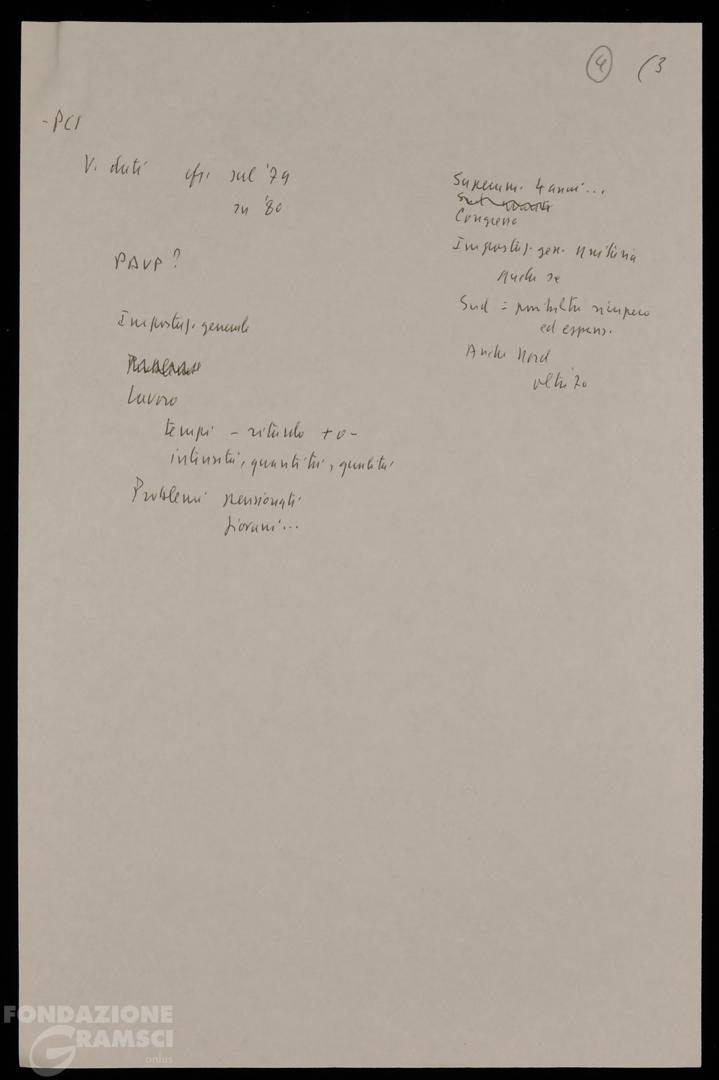 4 (3
- PCI
V. dati cfr. sul '79
su '80
PDUP ?
Impostaz. generale
Lavoro
tempi - ritardo + o -
intensità, quantità, qualità
Problemi pensionati
giovani...
4 anni...
Congresso
Impostaz. gen. unitaria
Anche se
Sud = possibilità recupero
ed espans.
Anche Nord
oltre '20
FONDAZIONE
GRAMSCI
onlus